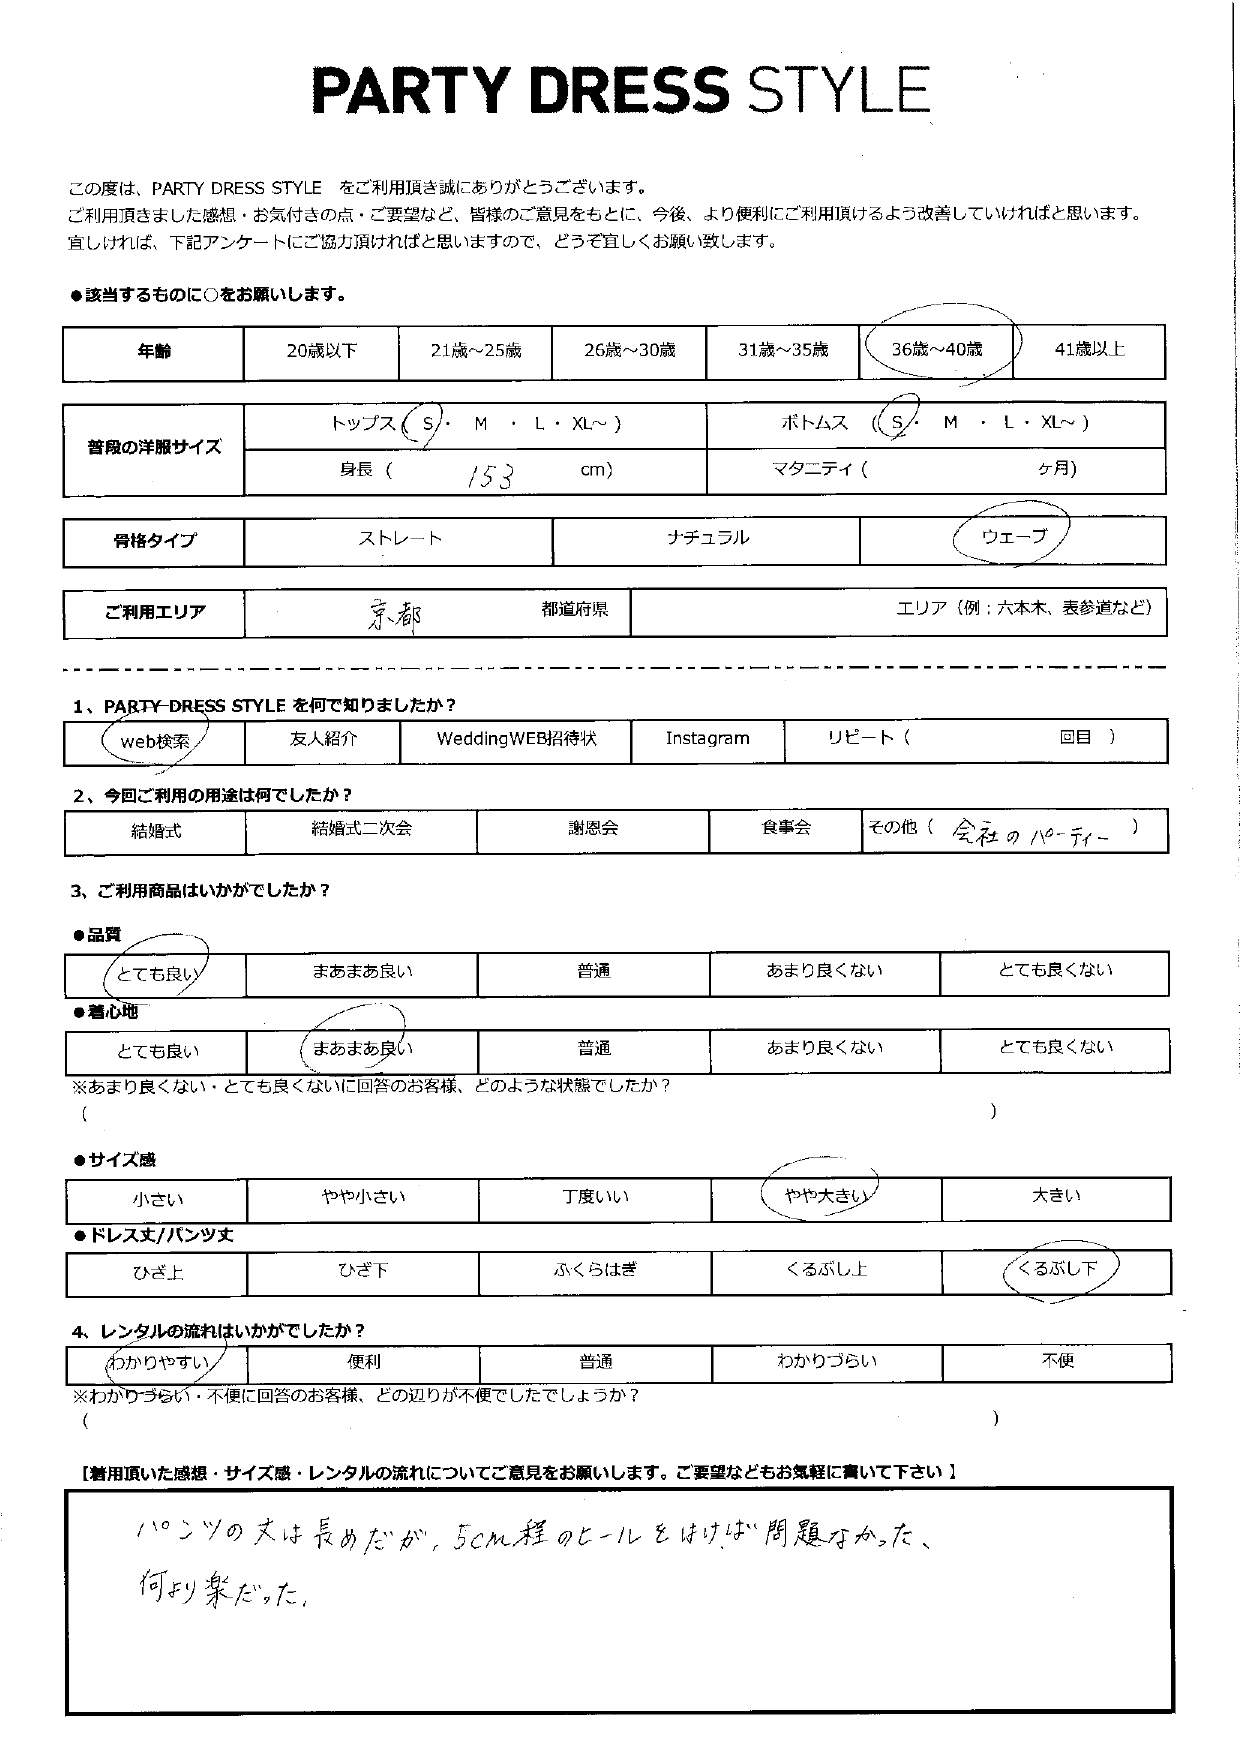 PARTY DRESS STYLE
この度は、PARTY DRESS STYLE をご利用頂き誠にありがとうございます。
ご利用頂きました感想・お気付きの点・ご要望など、皆様のご意見をもとに、今後、より便利にご利用頂けるよう改善していければと思います。
宜しければ、下記アンケートにご協力頂ければと思いますので、どうぞ宜しくお願い致します。
●該当するものに○をお願いします。
年齢 20歳以下 21歳～25歳 26歳～30歳 31歳～35歳 36歳～40歳 41歳以上
普段の洋服サイズ トップス ( S ・ M ・ L ・ XL～ ) ボトムス ( S ・ M ・ L ・ XL～ )
身長 ( 153 cm) マタニティ ( ヶ月)
骨格タイプ ストレート ナチュラル ウェーブ
ご利用エリア 京都 都道府県 エリア（例：六本木、表参道など）
1、PARTY DRESS STYLE を何で知りましたか？
web検索 友人紹介 WeddingWEB招待状 Instagram リピート ( 回目 )
2、今回ご利用の用途は何でしたか？
結婚式 結婚式二次会 謝恩会 食事会 その他 ( 会社のパーティー )
3、ご利用商品はいかがでしたか？
●品質
とても良い まあまあ良い 普通 あまり良くない とても良くない
●着心地
とても良い まあまあ良い 普通 あまり良くない とても良くない
※あまり良くない・とても良くないに回答のお客様、どのような状態でしたか？
( )
●サイズ感
小さい やや小さい 丁度いい やや大きい 大きい
●ドレス丈/パンツ丈
ひざ上 ひざ下 ふくらはぎ くるぶし上 くるぶし下
4、レンタルの流れはいかがでしたか？
わかりやすい 便利 普通 わかりづらい 不便
※わかりづらい・不便に回答のお客様、どの辺りが不便でしたでしょうか？
( )
【着用頂いた感想・サイズ感・レンタルの流れについてご意見をお願いします。ご要望などもお気軽に書いて下さい 】
パンツの丈は長めだが、5cm程のヒールをはけば問題なかった、
何より楽だった。